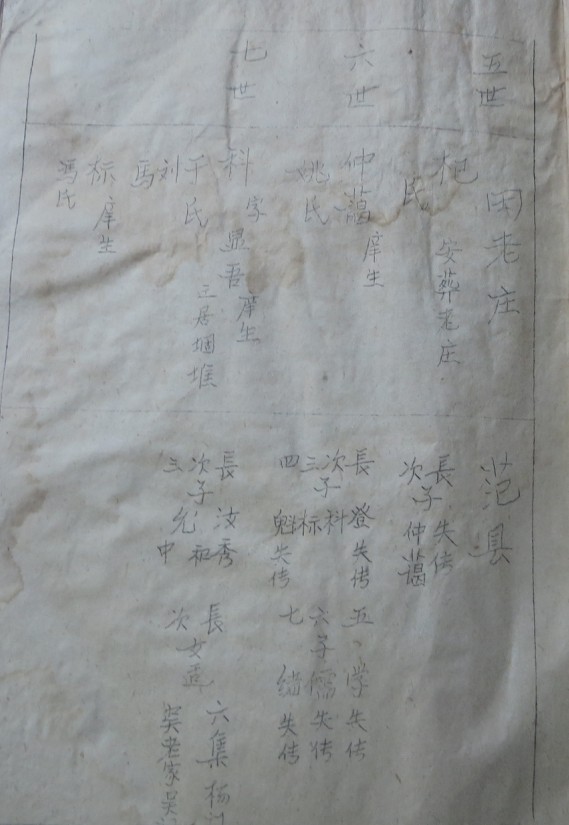 五世
田老庄
范县
杷
民
安葬老庄
長失传
次子仲蔼
六世
仲蔼
庠生
姚氏
長登失传
次子科
三标
四魁失传
五学失传
六子儒失传
七绪失传
七世
科字显吾庠生
于氏
刘
馬
三居堌堆
标庠生
冯氏
長汝秀
次子允和
三中
長六集杨
次女适吴老家吴